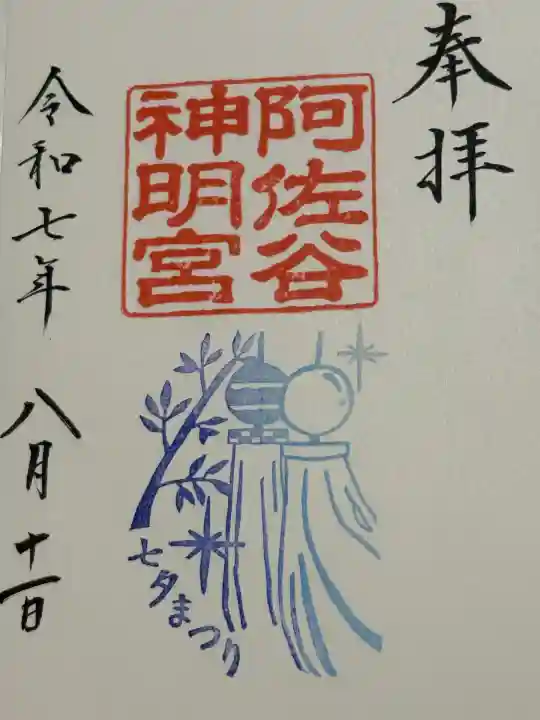 奉拝
阿佐谷
神明宮
七夕まつり
令和七年 八月十一日